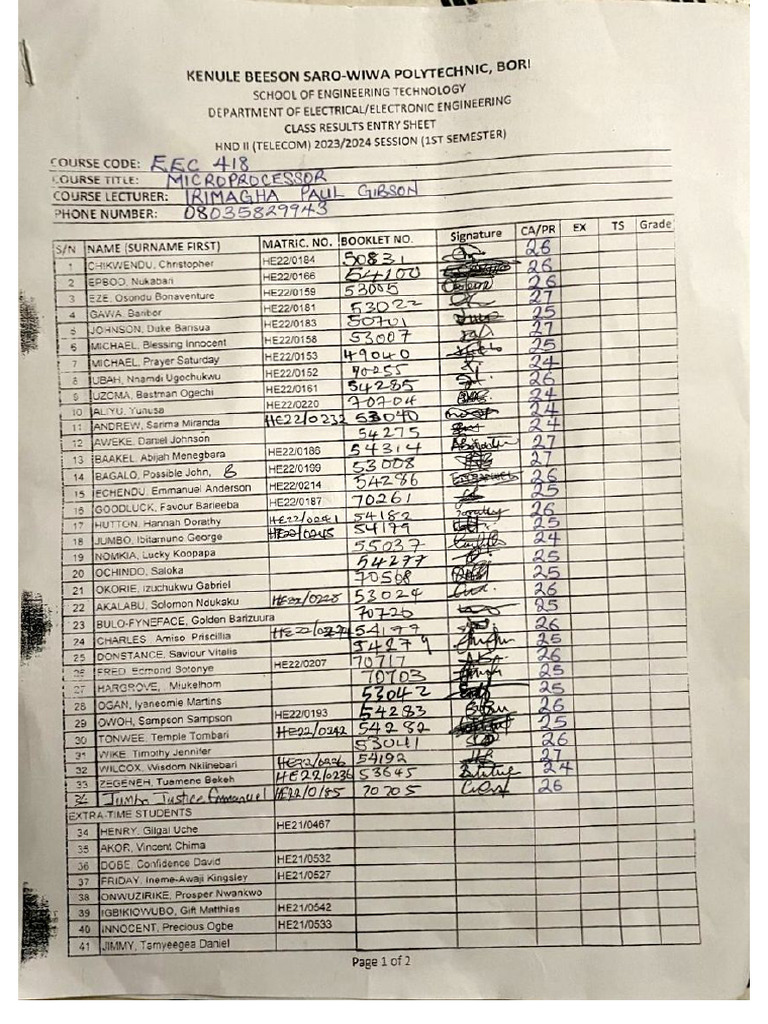 KENULE BEESON SARO-WIWA POLYTECHNIC, BORI
SCHOOL OF ENGINEERING TECHNOLOGY
DEPARTMENT OF ELECTRICAL/ELECTRONIC ENGINEERING
CLASS RESULTS ENTRY SHEET
HND II (TELECOM) 2023/2024 SESSION (1ST SEMESTER)
COURSE CODE: EEC 418
COURSE TITLE: MICROPROCESSOR
COURSE LECTURER: IRIMAGHA PAUL GIBSON
PHONE NUMBER: 08035829943
S/N NAME (SURNAME FIRST) MATRIC. NO. BOOKLET NO. Signature CA/PR EX TS Grade
1 CHIKWENDU, Christopher HE22/0184 50831 26
2 EPBOO, Nukabari HE22/0166 54100 26
3 EZE, Osondu Bonaventure HE22/0159 53005 26
4 GAWA, Banbor HE22/0181 53022 27
5 JOHNSON, Duke Barisua HE22/0183 50701 25
6 MICHAEL, Blessing Innocent HE22/0158 53007 27
7 MICHAEL, Prayer Saturday HE22/0153 49040 25
8 UBAH, Nnamdi Ugochukwu HE22/0152 70255 24
9 UZOMA, Bestman Ogechi HE22/0161 54285 26
10 ALIYU, Yunusa HE22/0220 70704 24
11 ANDREW, Sarima Miranda HE22/0232 53040 24
12 AWEKE, Daniel Johnson 54275 24
13 BAAKEL, Abijah Menegbara HE22/0186 54314 27
14 BAGALO, Possible John, B HE22/0199 53008 27
15 ECHENDU, Emmanuel Anderson HE22/0214 54286 26
16 GOODLUCK, Favour Barieeba HE22/0187 70261 25
17 HUTTON, Hannah Dorathy HE22/0241 54182 26
18 JUMBO, Ibitamuno George 54179 25
19 NOMKIA, Lucky Koopapa 55037 24
20 OCHINDO, Saloka 54277 25
21 OKORIE, Izuchukwu Gabriel 70568 25
22 AKALABU, Solomon Ndukaku HE22/0228 53024 26
23 BULO-FYNEFACE, Golden Barizuura 70726 25
24 CHARLES, Amiso Priscillia 54177 26
25 DONSTANCE, Saviour Vitalis 54279 25
26 FRED, Edmond Sotonye HE22/0207 70717 26
27 HARGROVE, Miukelhom 70703 25
28 OGAN, Iyaneomie Martins 53042 25
29 OWOH, Sampson Sampson HE22/0193 54283 26
30 TONWEE, Temple Tombari HE22/0242 54282 25
31 WIKE, Timothy Jennifer 53041 26
32 WILCOX, Wisdom Nkiinebari 54192 27
33 ZEGENEH, Tuamene Bekeh HE22/0236 53645 24
34 Jumbo Justice Emmanuel HE22/0185 70705 26
EXTRA-TIME STUDENTS
34 HENRY, Gilgal Uche HE21/0467
35 AKOR, Vincent Chima
36 DOBE, Confidence David HE21/0532
37 FRIDAY, Ineme-Awaji Kingsley HE21/0527
38 ONWUZIRIKE, Prosper Nwankwo
39 IGBIKIOWUBO, Gift Matthias HE21/0542
40 INNOCENT, Precious Ogbe HE21/0533
41 JIMMY, Tamyeegea Daniel
Page 1 of 2